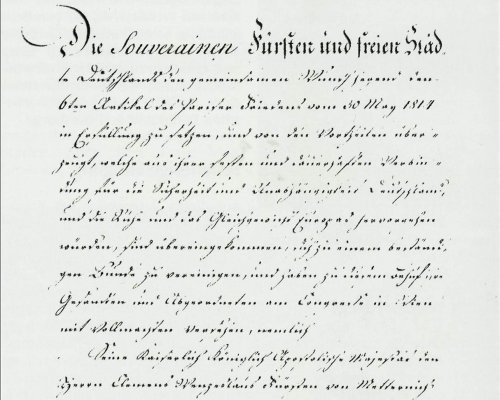 Die Souverainen Fürsten und freien Städ-
te Deutschlands den gemeinsamen Wunsch hegend den
6ten Artikel des Pariser Friedens vom 30 May 1814
in Erfüllung zu setzen, und von den Vortheilen über-
zeugt, welche aus ihrer festen und dauerhaften Verbin-
dung für die Sicherheit und Unabhängigkeit Deutschlands,
und die Ruhe und das Gleichgewicht Europas hervorgehen
würden, sind übereingekommen, sich zu einem beständi-
gen Bunde zu vereinigen, und haben zu diesem Behuf ihre
Gesandten und Abgeordneten am Congresse in Wien
mit Vollmachten versehen, nemlich
Seine Kaiserlich Königlich Apostolische Majestät den
Herrn Clemens Wenzeslaus Fürsten von Metternich